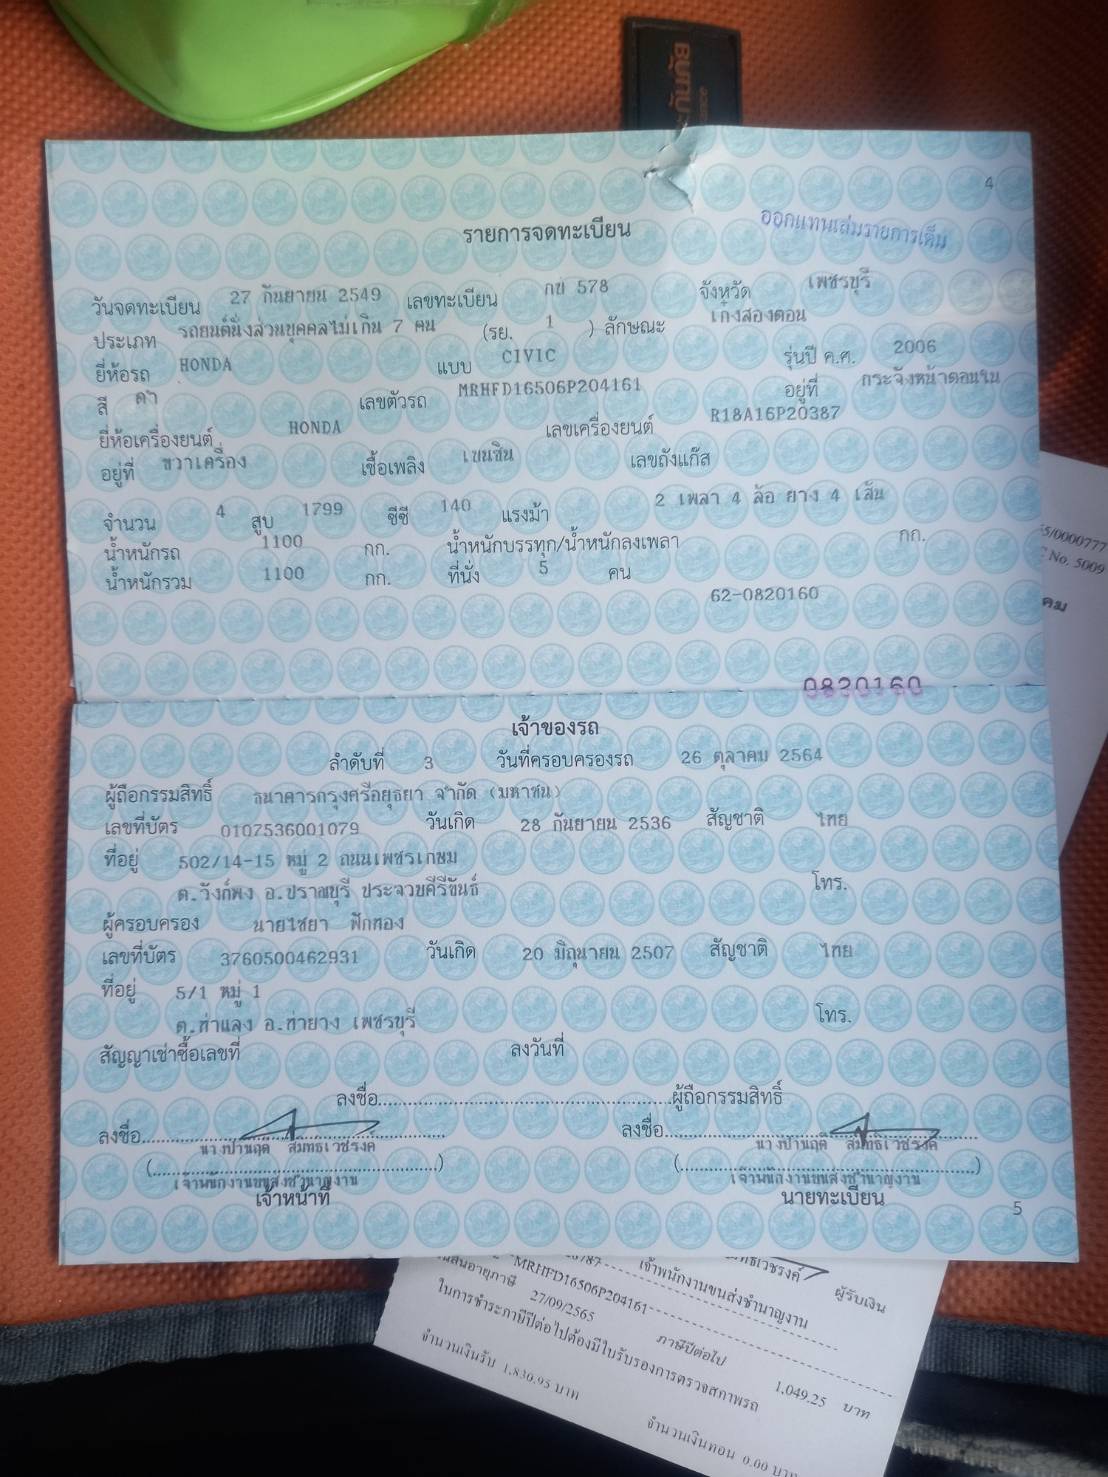 4
รายการจดทะเบียน
ออกแทนเล่มรายการเดิม
วันจดทะเบียน 27 กันยายน 2549 เลขทะเบียน กข 578 จังหวัด เพชรบุรี
ประเภท รถยนต์นั่งส่วนบุคคลไม่เกิน 7 คน (รย. 1 ) ลักษณะ เก๋งสองตอน
ยี่ห้อรถ HONDA แบบ CIVIC รุ่นปี ค.ศ. 2006
สี ดำ เลขตัวรถ MRHFD16506P204161 อยู่ที่ กระจังหน้าตอนใน
ยี่ห้อเครื่องยนต์ HONDA เลขเครื่องยนต์ R18A16P20387
อยู่ที่ ขวาเครื่อง เชื้อเพลิง เบนซิน เลขถังแก๊ส
จำนวน 4 สูบ 1799 ซีซี 140 แรงม้า 2 เพลา 4 ล้อ ยาง 4 เส้น
น้ำหนักรถ 1100 กก. น้ำหนักบรรทุก/น้ำหนักลงเพลา กก.
น้ำหนักรวม 1100 กก. ที่นั่ง 5 คน
62-0820160
0820160
เจ้าของรถ
ลำดับที่ 3 วันที่ครอบครองรถ 26 ตุลาคม 2564
ผู้ถือกรรมสิทธิ์ ธนาคารกรุงศรีอยุธยา จำกัด (มหาชน)
เลขที่บัตร 0107536001079 วันเกิด 28 กันยายน 2536 สัญชาติ ไทย
ที่อยู่ 502/14-15 หมู่ 2 ถนนเพชรเกษม
ต.วังก์พง อ.ปราณบุรี ประจวบคีรีขันธ์ โทร.
ผู้ครอบครอง นายไชยา ฟักทอง
เลขที่บัตร 3760500462931 วันเกิด 20 มิถุนายน 2507 สัญชาติ ไทย
ที่อยู่ 5/1 หมู่ 1
ต.ท่าแลง อ.ท่ายาง เพชรบุรี โทร.
สัญญาเช่าซื้อเลขที่ ลงวันที่
ลงชื่อ ผู้ถือกรรมสิทธิ์
ลงชื่อ ลงชื่อ
เจ้าพนักงานขนส่งชำนาญงาน เจ้าพนักงานขนส่งชำนาญงาน
เจ้าหน้าที่ นายทะเบียน
5
5/0000777
No. 5009
ผู้รับเงิน
เจ้าพนักงานขนส่งชำนาญงาน
MRHFD16506P204161
27/09/2565
ภาษีปีต่อไป 1,049.25 บาท
ในการชำระภาษีปีต่อไปต้องมีใบรับรองการตรวจสภาพรถ
จำนวนเงินรับ 1,830.95 บาท จำนวนเงินทอน 0.00